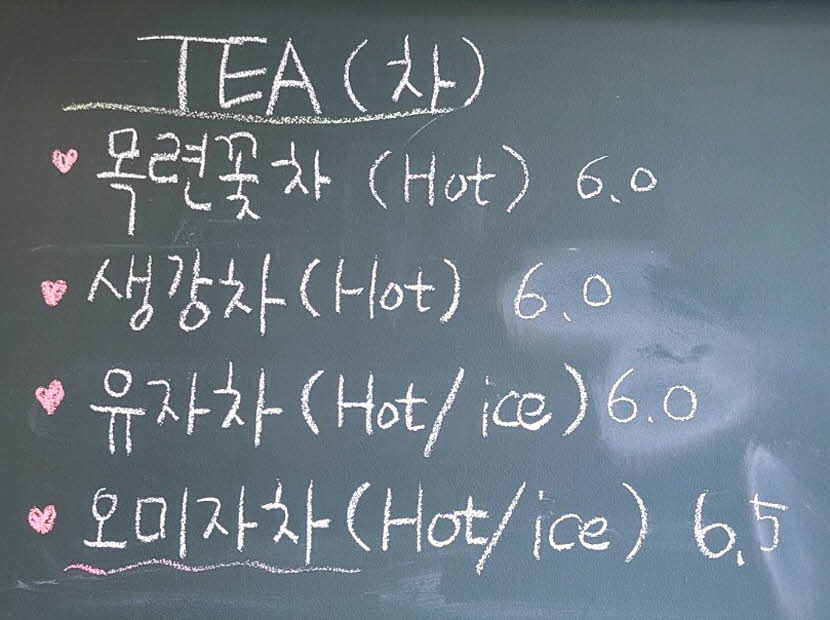 TEA (차)
목련꽃차 (Hot) 6.0
생강차 (Hot) 6.0
유자차 (Hot/ice) 6.0
오미자차 (Hot/ice) 6.5